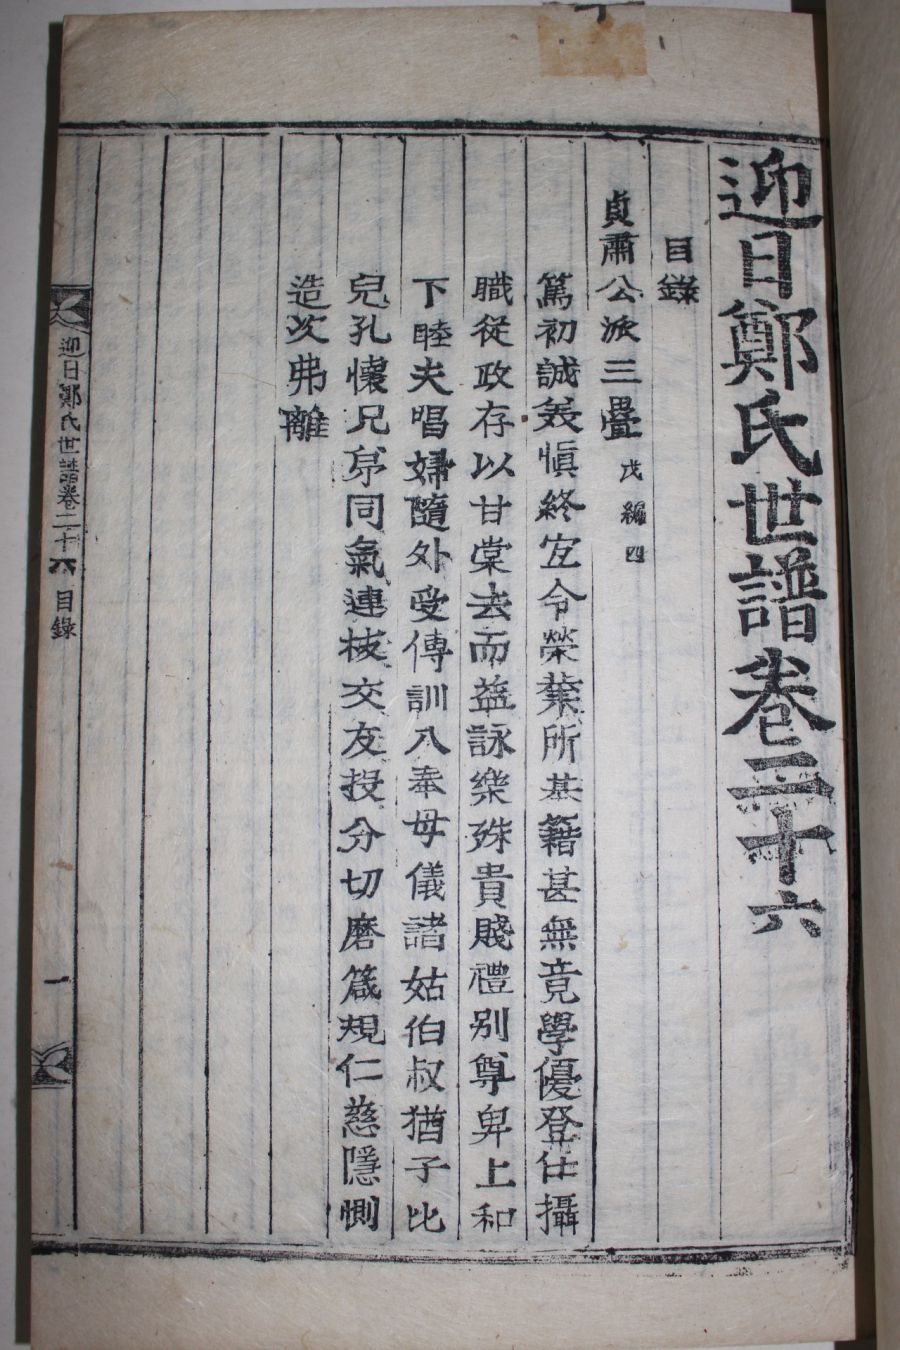 迎日鄭氏世譜卷二十六
目錄
貞肅公派三疊 戊編四
篤初誠義愼終宜令榮業所基籍甚無竟學優登仕攝
職從政存以甘棠去而益詠樂殊貴賤禮別尊卑上和
下睦夫唱婦隨外受傅訓入奉母儀諸姑伯叔猶子比
兒孔懷兄弟同氣連枝交友投分切磨箴規仁慈隱惻
造次弗離
迎日鄭氏世譜卷二十六 目錄
一